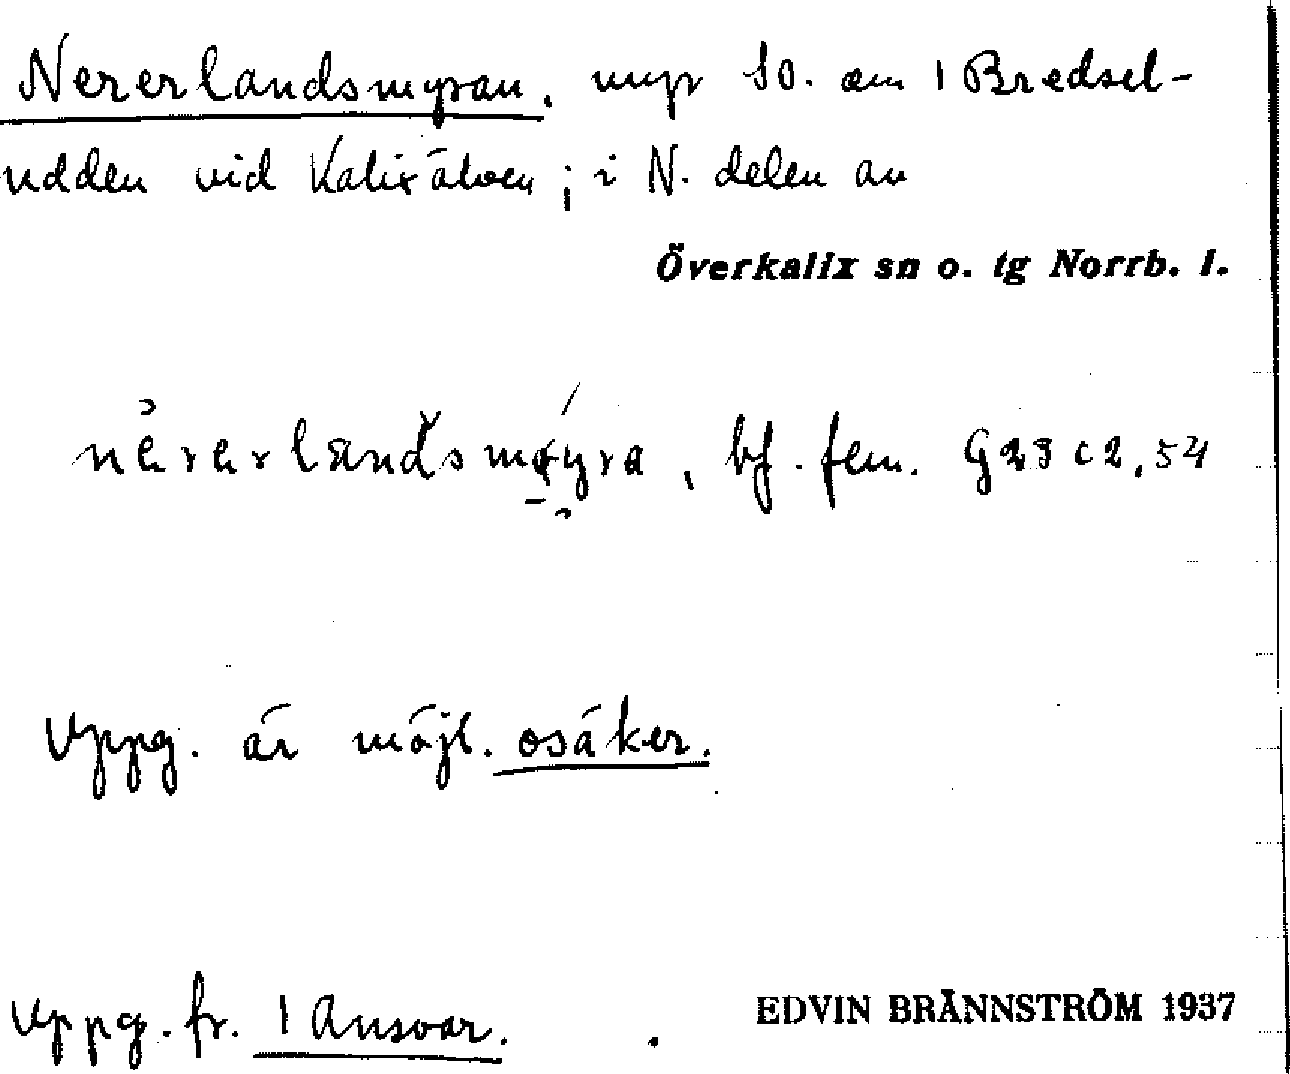 Nererlandsmyran, myr SO. om 1 Bredsel-
udden vid Kalixälven; i N. delen av
Överkalix sn o. tg Norrb. l.
nererlandsmøyra, bf. fem. G23 c2,54
Uppg. är möjl. osäker.
Uppg. fr. 1 Ansvar.
EDVIN BRÄNNSTRÖM 1937